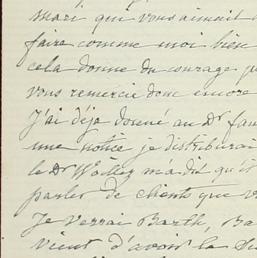 mari qui vous aimait
faire comme moi bien
cela donne du courage
vous remercie donc encore
J'ai déjà donné au Dr
une notice je distribuerai
le Dr m'a dit qu'il
parler de clients que
Je verrai Barth,
vient d'avoir la